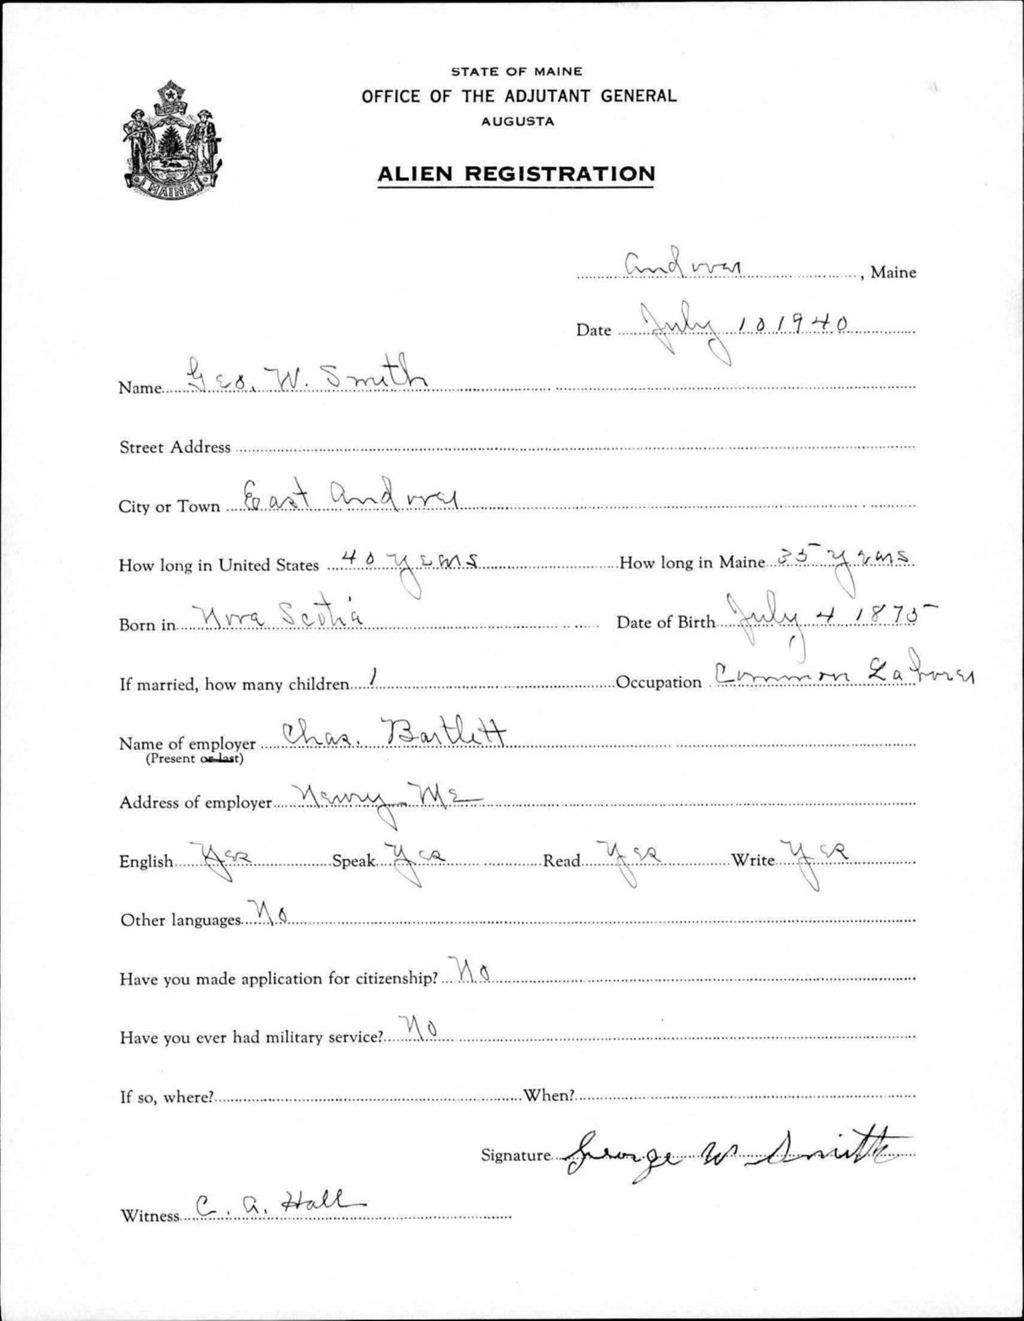 STATE OF MAINE
OFFICE OF THE ADJUTANT GENERAL
AUGUSTA
ALIEN REGISTRATION
MAINE
Andover, Maine
Date July 10 1940
Name Geo. W. Smith
Street Address
City or Town East Andover
How long in United States 40 years How long in Maine 35 years
Born in Nova Scotia Date of Birth July 4 1875
If married, how many children 1 Occupation Common Laborer
Name of employer Chas. Bartlett
(Present or last)
Address of employer Newry, Me
English Yes Speak Yes Read Yes Write Yes
Other languages No
Have you made application for citizenship? No
Have you ever had military service? No
If so, where? When?
Signature George W Smith
Witness C. A. Hall